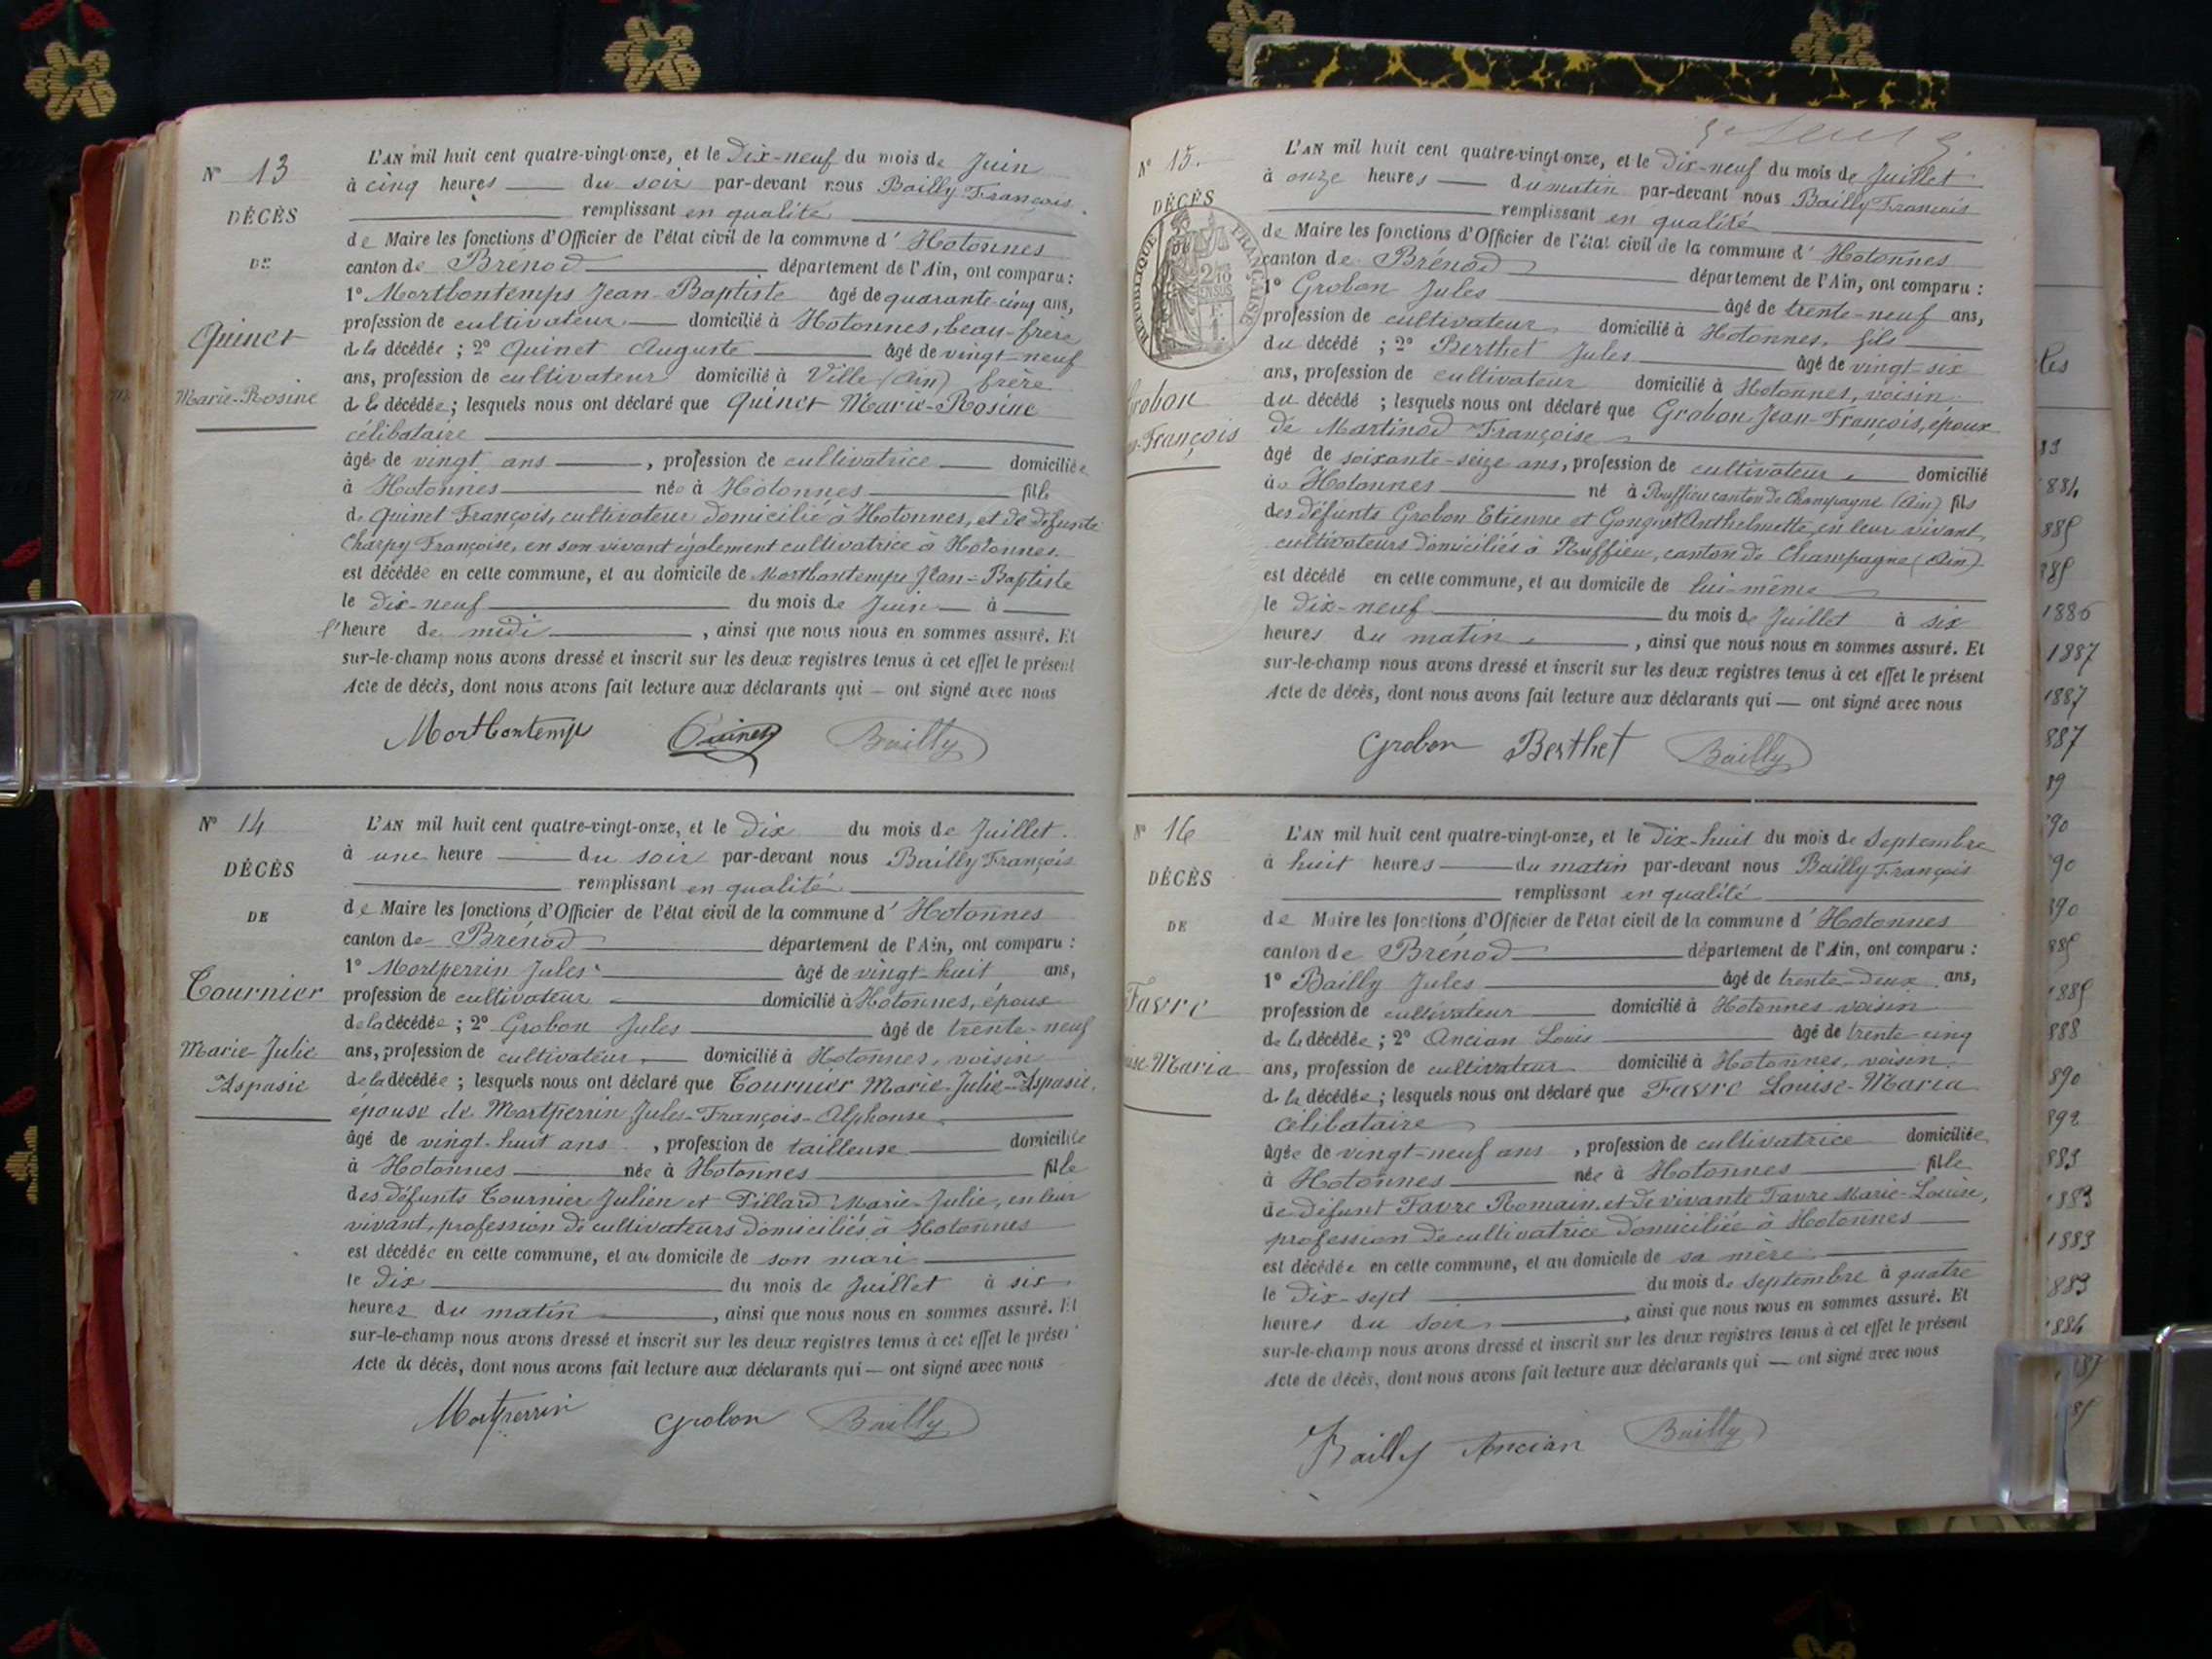 N° 13
DÉCÈS
DE
Quinet
Marie-Rosine
L'AN mil huit cent quatre-vingt-onze, et le Dix-neuf du mois de Juin
à cinq heures du soir par-devant nous Bailly François
remplissant en qualité
de Maire les fonctions d'Officier de l'état civil de la commune d' Hotonnes
canton de Brénod département de l'Ain, ont comparu :
1° Mortbontemps Jean-Baptiste âgé de quarante-cinq ans,
profession de cultivateur domicilié à Hotonnes, beau-frère
de la décédée ; 2° Quinet Auguste âgé de vingt-neuf
ans, profession de cultivateur domicilié à Ville (Ain) frère
de la décédée ; lesquels nous ont déclaré que Quinet Marie-Rosine
célibataire
âgée de vingt ans, profession de cultivatrice domiciliée
à Hotonnes née à Hotonnes fille
de Quinet François, cultivateur domicilié à Hotonnes, et de défunte
Charpy Françoise, en son vivant également cultivatrice à Hotonnes
est décédée en cette commune, et au domicile de Mortbontemps Jean-Baptiste
le dix-neuf du mois de Juin à
l'heure de midi, ainsi que nous nous en sommes assuré. Et
sur-le-champ nous avons dressé et inscrit sur les deux registres tenus à cet effet le présent
Acte de décès, dont nous avons fait lecture aux déclarants qui — ont signé avec nous
Mortbontemps Quinet Bailly
N° 14
DÉCÈS
DE
Tournier
Marie-Julie
Aspasie
L'AN mil huit cent quatre-vingt-onze, et le Dix du mois de Juillet
à une heure du soir par-devant nous Bailly François
remplissant en qualité
de Maire les fonctions d'Officier de l'état civil de la commune d' Hotonnes
canton de Brénod département de l'Ain, ont comparu :
1° Mortperrin Jules âgé de vingt-huit ans,
profession de cultivateur domicilié à Hotonnes, époux
de la décédée ; 2° Grobon Jules âgé de trente-neuf
ans, profession de cultivateur domicilié à Hotonnes, voisin
de la décédée ; lesquels nous ont déclaré que Tournier Marie-Julie-Aspasie,
épouse de Mortperrin Jules-François-Alphonse
âgé de vingt-huit ans, profession de tailleuse domiciliée
à Hotonnes née à Hotonnes fille
des défunts Tournier Julien et Pillard Marie-Julie, en leur
vivant, profession de cultivateurs domiciliés à Hotonnes
est décédée en cette commune, et au domicile de son mari
le Dix du mois de Juillet à six
heures du matin, ainsi que nous nous en sommes assuré. Et
sur-le-champ nous avons dressé et inscrit sur les deux registres tenus à cet effet le présent
Acte de décès, dont nous avons fait lecture aux déclarants qui — ont signé avec nous
Mortperrin Grobon Bailly
N° 15.
DÉCÈS
RÉPUBLIQUE FRANÇAISE
Grobon
François
L'AN mil huit cent quatre-vingt-onze, et le Dix-neuf du mois de Juillet
à onze heures du matin par-devant nous Bailly François
remplissant en qualité
de Maire les fonctions d'Officier de l'état civil de la commune d' Hotonnes
canton de Brénod département de l'Ain, ont comparu :
1° Grobon Jules âgé de trente-neuf ans,
profession de cultivateur domicilié à Hotonnes, fils
du décédé ; 2° Berthet Jules âgé de vingt-six
ans, profession de cultivateur domicilié à Hotonnes, voisin
du décédé ; lesquels nous ont déclaré que Grobon Jean-François, époux
de Martinod Françoise
âgé de soixante-seize ans, profession de cultivateur domicilié
à Hotonnes né à Ruffieu canton de Champagne (Ain) fils
des défunts Grobon Etienne et Anthelmette, en leur vivant
cultivateurs domiciliés à Ruffieu, canton de Champagne (Ain)
est décédé en cette commune, et au domicile de lui-même
le Dix-neuf du mois de Juillet à six
heures du matin, ainsi que nous nous en sommes assuré. Et
sur-le-champ nous avons dressé et inscrit sur les deux registres tenus à cet effet le présent
Acte de décès, dont nous avons fait lecture aux déclarants qui — ont signé avec nous
Grobon Berthet Bailly
N° 16
DÉCÈS
DE
Favre
Maria
L'AN mil huit cent quatre-vingt-onze, et le Dix-huit du mois de Septembre
à huit heures du matin par-devant nous Bailly François
remplissant en qualité
de Maire les fonctions d'Officier de l'état civil de la commune d' Hotonnes
canton de Brénod département de l'Ain, ont comparu :
1° Bailly Jules âgé de trente-deux ans,
profession de cultivateur domicilié à Hotonnes voisin
de la décédée ; 2° Ancian Louis âgé de trente-cinq
ans, profession de cultivateur domicilié à Hotonnes, voisin
de la décédée ; lesquels nous ont déclaré que Favre Louise-Maria
célibataire
âgée de vingt-neuf ans, profession de cultivatrice domiciliée
à Hotonnes née à Hotonnes fille
de défunt Favre Romain et de vivante Favre Marie-Louise,
profession de cultivatrice domiciliée à Hotonnes
est décédée en cette commune, et au domicile de sa mère
le Dix-sept du mois de Septembre à quatre
heures du soir, ainsi que nous nous en sommes assuré. Et
sur-le-champ nous avons dressé et inscrit sur les deux registres tenus à cet effet le présent
Acte de décès, dont nous avons fait lecture aux déclarants qui — ont signé avec nous
Bailly Ancian Bailly
1886
1887
1887
887
89
90
90
890
1885
888
890
892
883
1883
1883
883